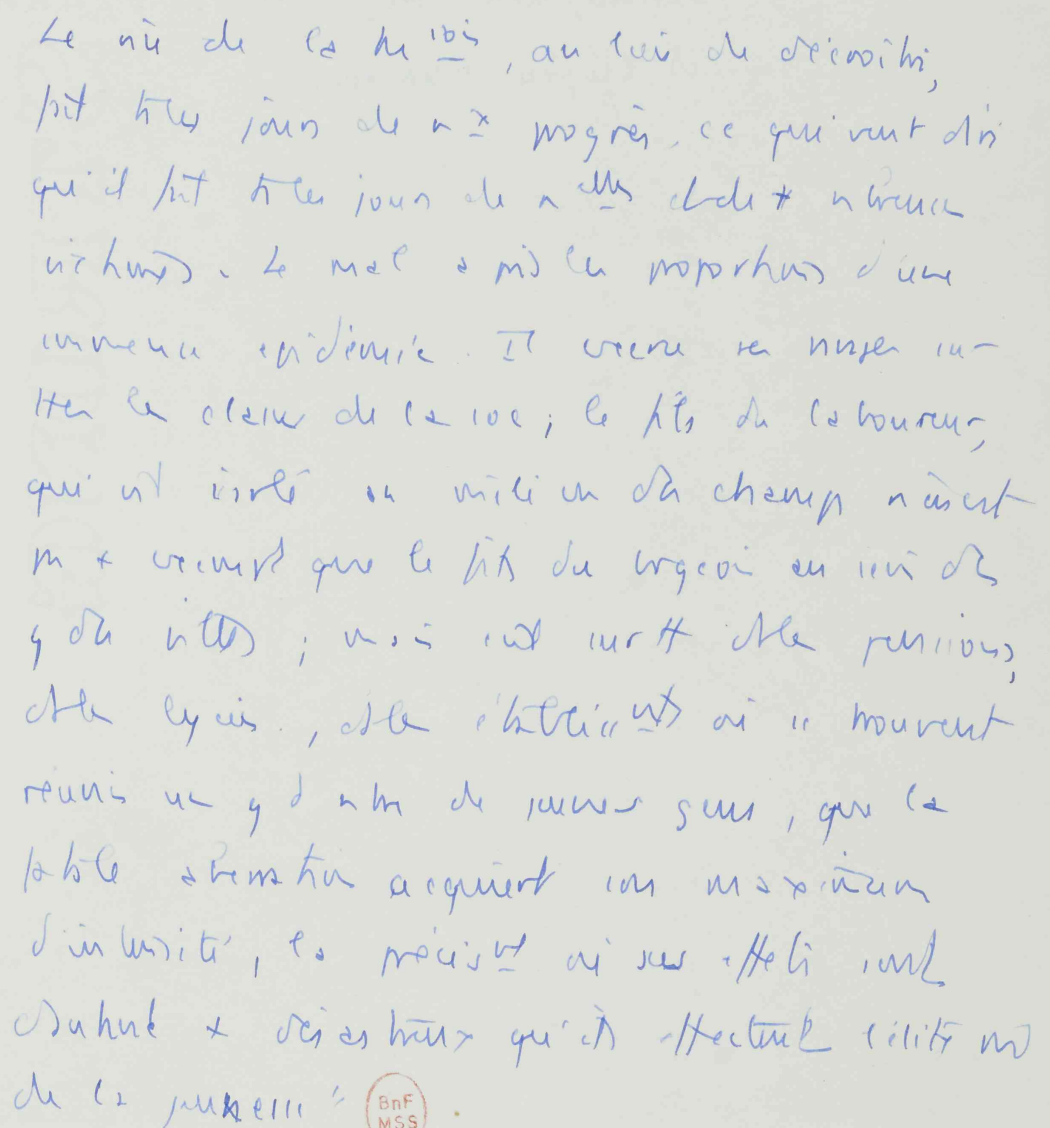 Le vice de la M^tion, au lieu de décroître,
fait ts les jours de n^x progrès, ce qui veut dire
qu'il fait ts les jours de n^lles et de + nbreuses
victimes. Le mal a pris les proportions d'une
immense épidémie. Il exerce ses ravages
ttes les classes de la soc ; le fils du laboureur,
qui vit isolé au milieu des champs n'en est
pas + exempt que le fils du brgeois au sein des
gdes villes ; mais c'est surtt ds les pensions,
ds les lycées, ds les établiss^nts où se trouvent
réunis un gd nbre de jeunes gens, que la
fatale aberration acquiert son maximum
d'intensité, là préciséᵐᵗ où ses effets sont
d'autant + désastreux qu'ils affectent l'élite
de la jeunesse "
BnF
MSS